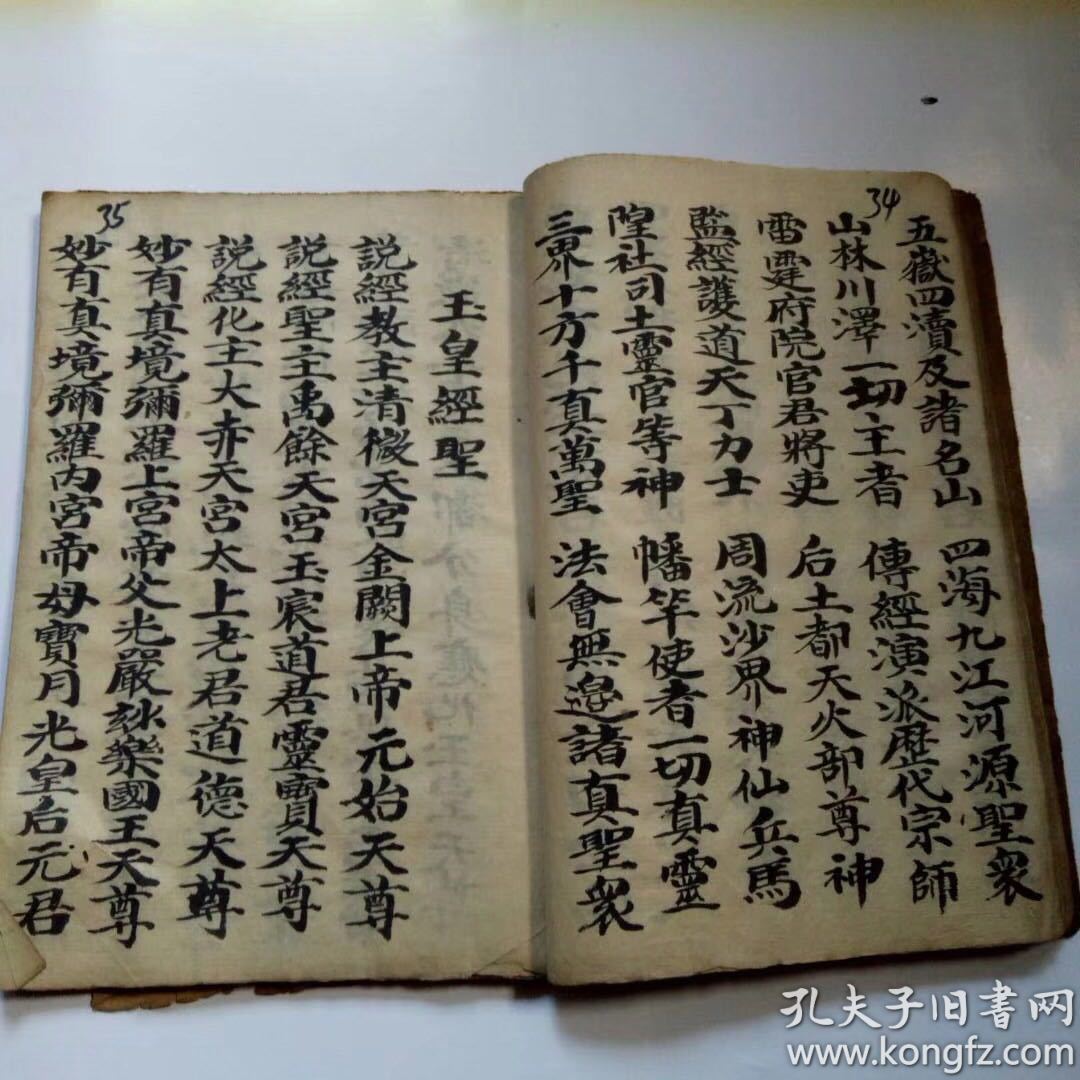 34
五嶽四瀆及諸名山 四海九江河源聖衆
山林川澤一切主者 傳經演派歷代宗師
雷霆府院官君將吏 后土都天火部尊神
監經護道天丁力士 周流沙界神仙兵馬
隍社司土靈官等神 幡竿使者一切真靈
三界十方千真萬聖 法會無邊諸真聖衆
35
玉皇經聖
説經教主清微天宮金闕上帝元始天尊
説經聖主禹餘天宮玉宸道君靈寶天尊
説經化主大赤天宮太上老君道德天尊
妙有真境彌羅上宮帝父光嚴玅樂國王天尊
妙有真境彌羅内宮帝母寶月光皇后元君
孔夫子旧書网
www.kongfz.com